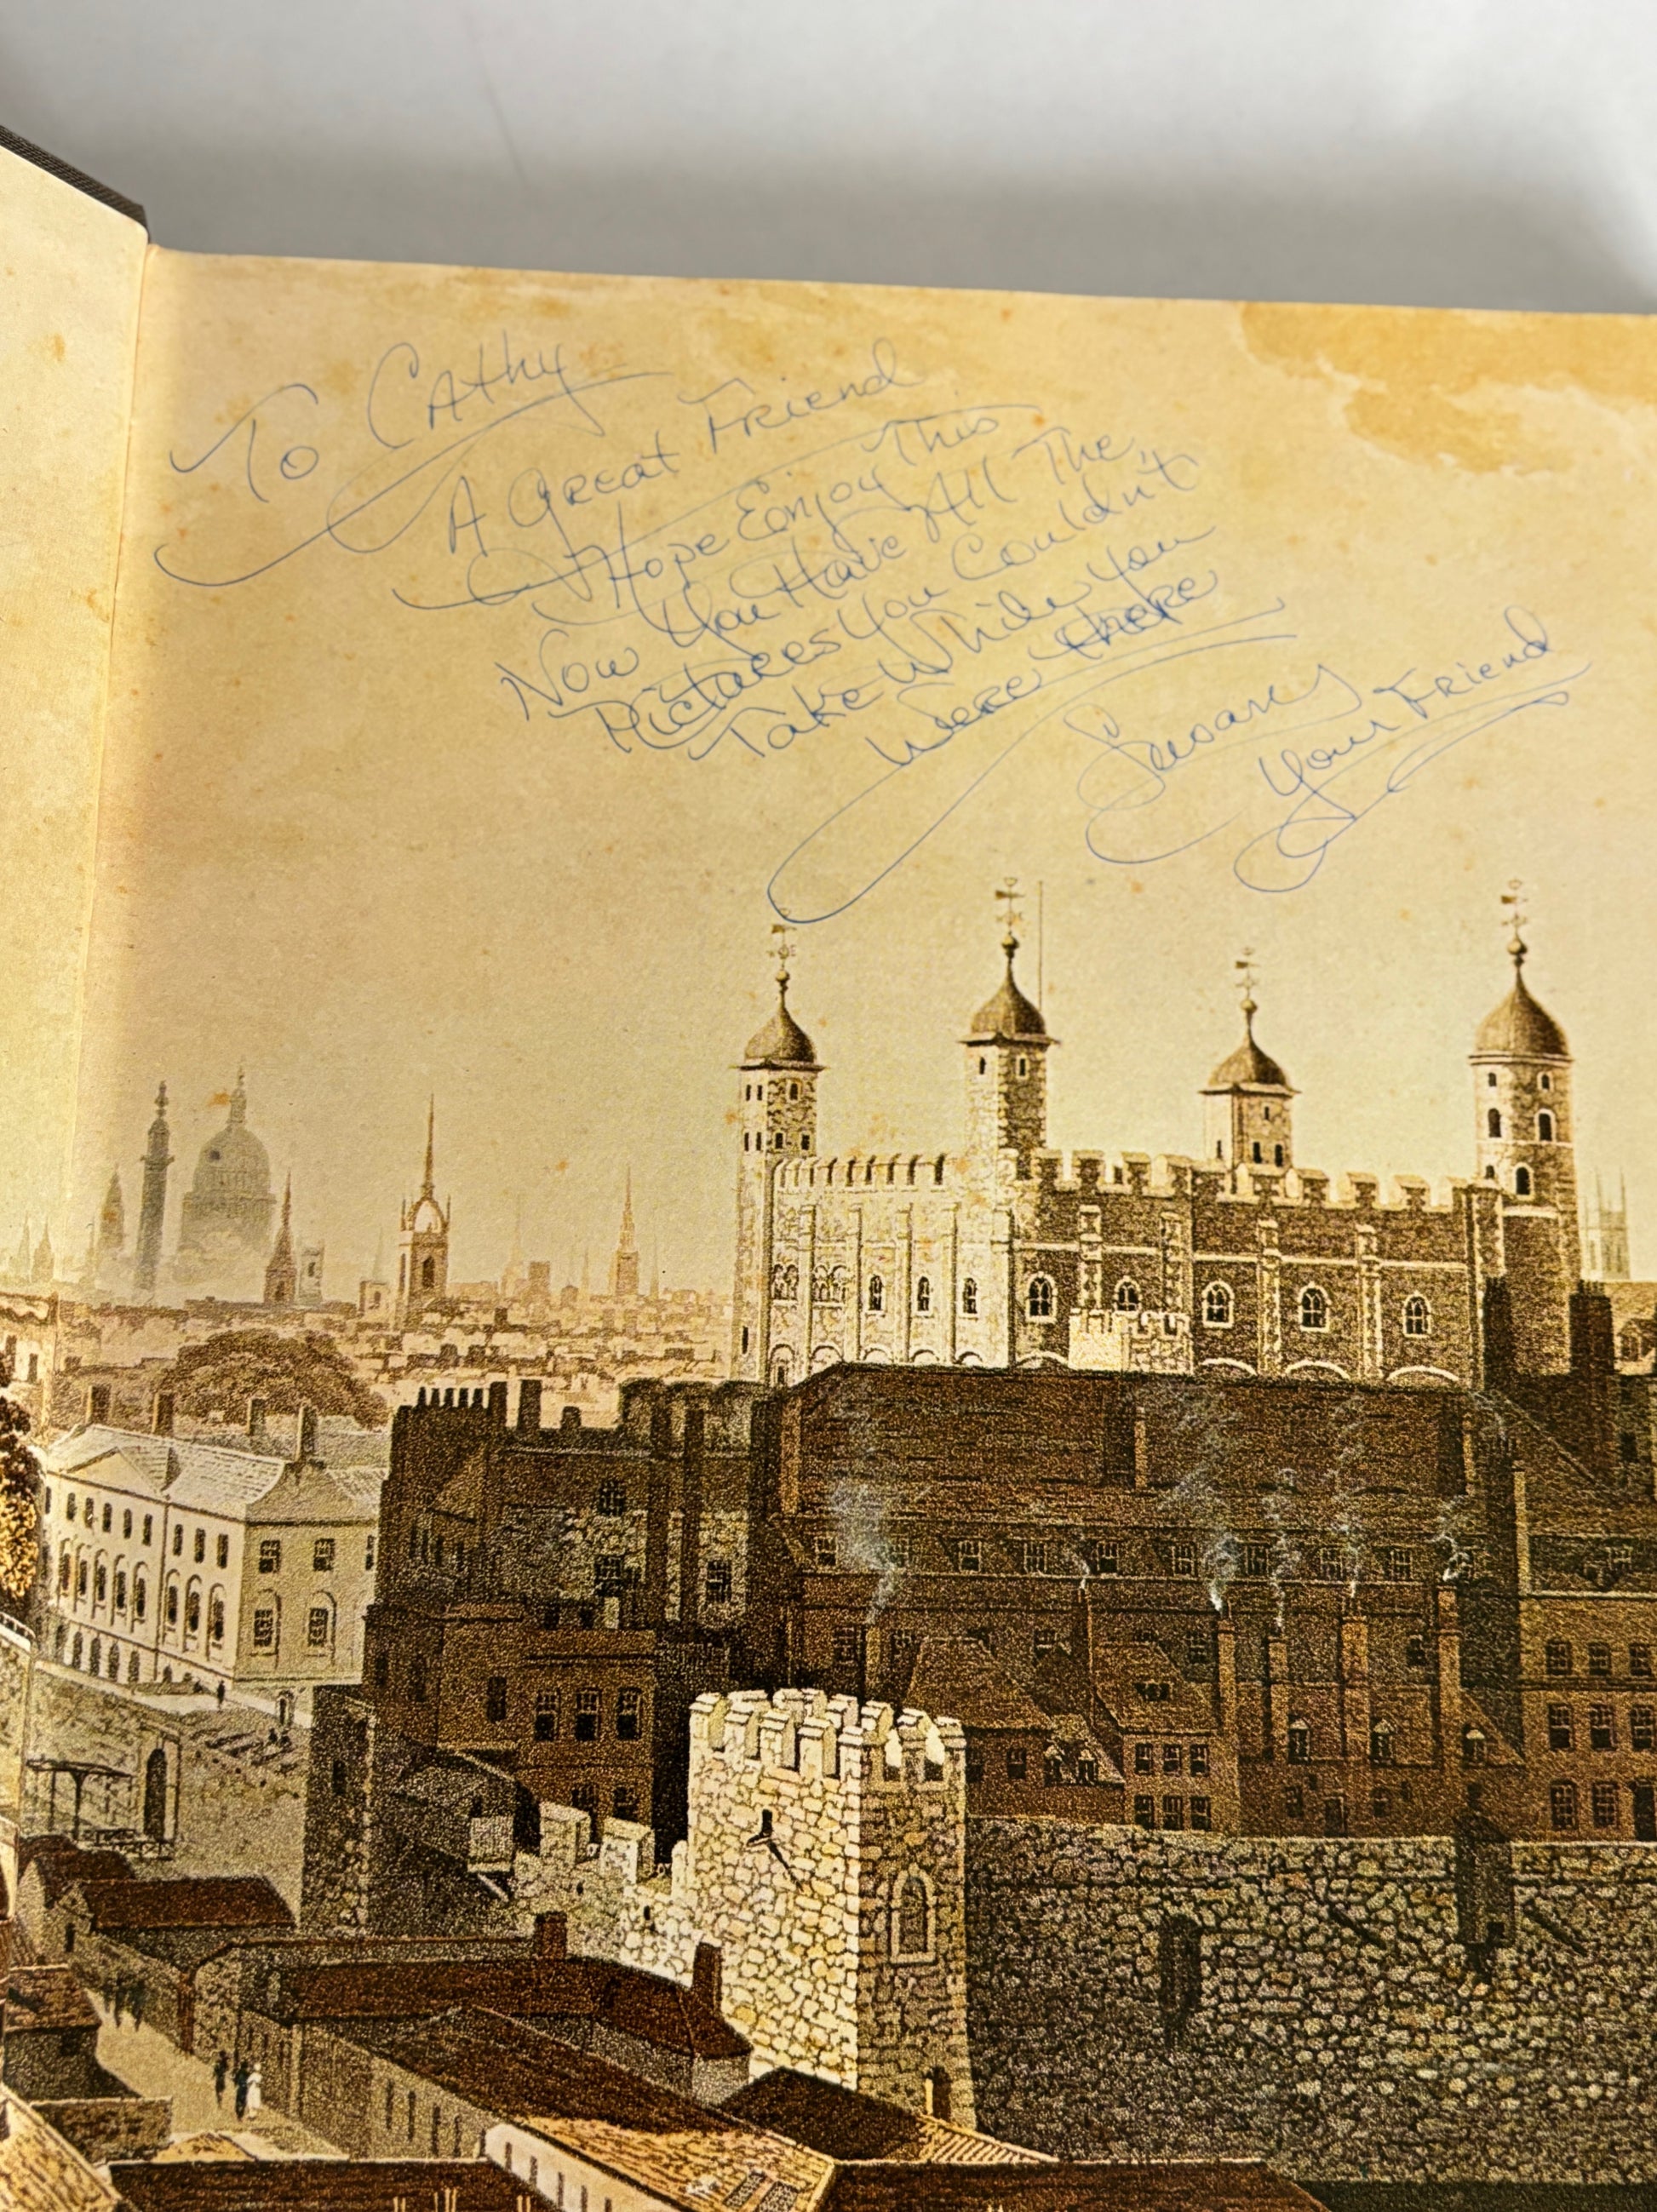 To CAthy
A Great Friend
Hope Eonjoy This
Now You Have All The
Pictures You Couldn't
Take While You
Were there
Susan
Your Friend